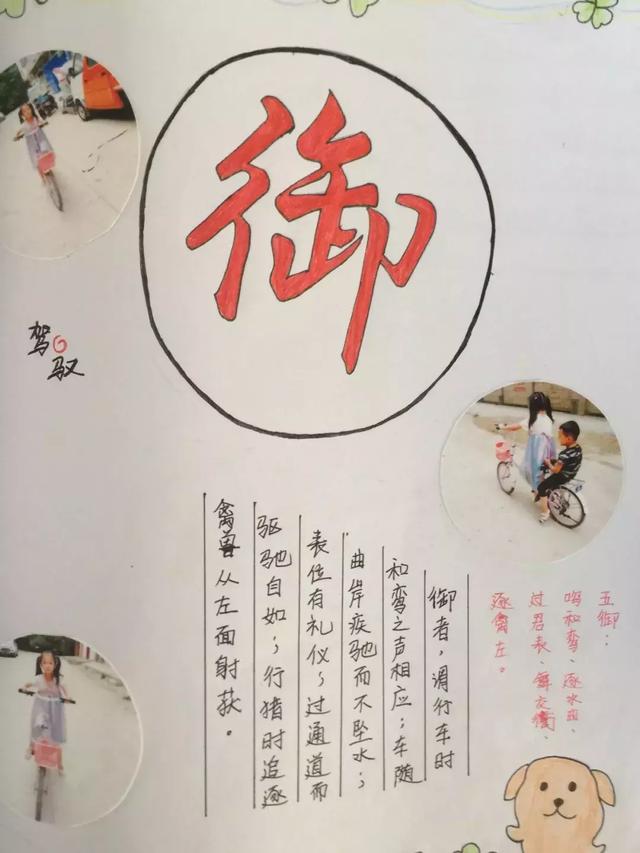 御
驾驭
御者，谓行车时
和鸾之声相应；车随
曲岸疾驰而不坠水；
表位有礼仪；过通道而
驱驰自如；行猎时追逐
禽兽从左面射获。
五御：
鸣和鸾、逐水曲、
过君表、舞交衢、
逐禽左。